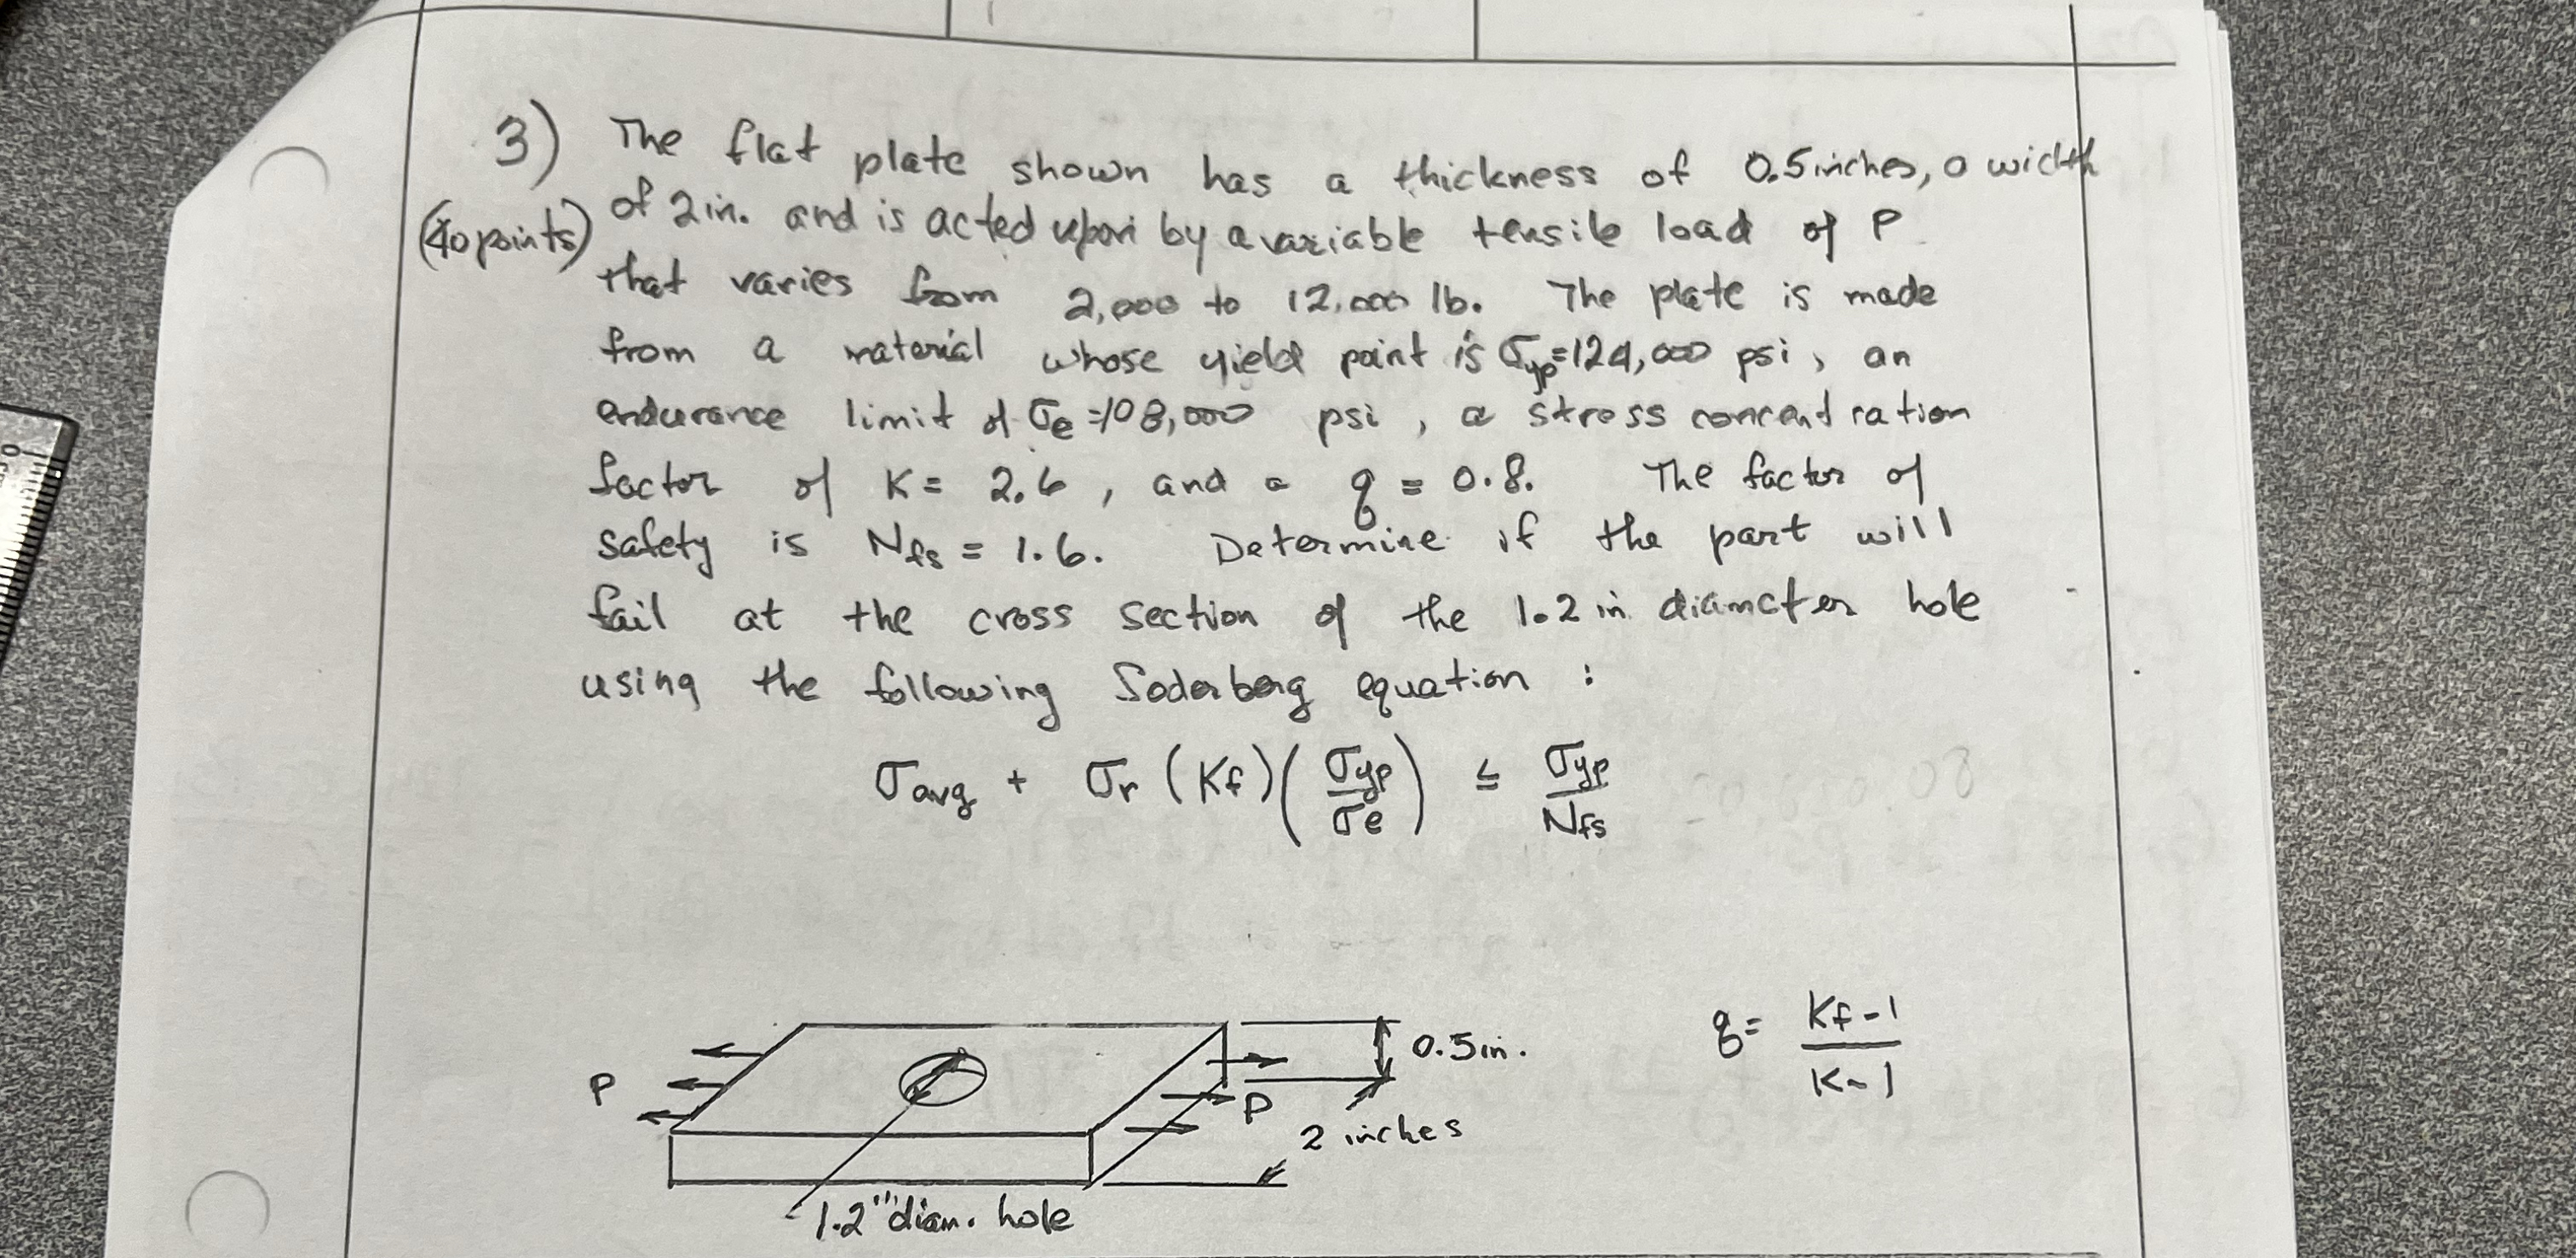 3) The flat plate shown has a thickness of 0.5 inches, a width
(40 points) of 2 in. and is acted upon by a variable tensile load of P
that varies from 2,000 to 12,000 lb. The plate is made
from a material whose yield point is σyp=124,000 psi, an
endurance limit of σe=108,000 psi, a stress concentration
factor of K = 2.6, and a q = 0.8. The factor of
safety is Nfs = 1.6. Determine if the part will
fail at the cross section of the 1.2 in diameter hole
using the following Soderberg equation :
σavg + σr (Kf)(σyp/σe) ≤ σyp/Nfs
q = Kf-1/K-1
0.5in.
P
P
2 inches
1.2" diam. hole